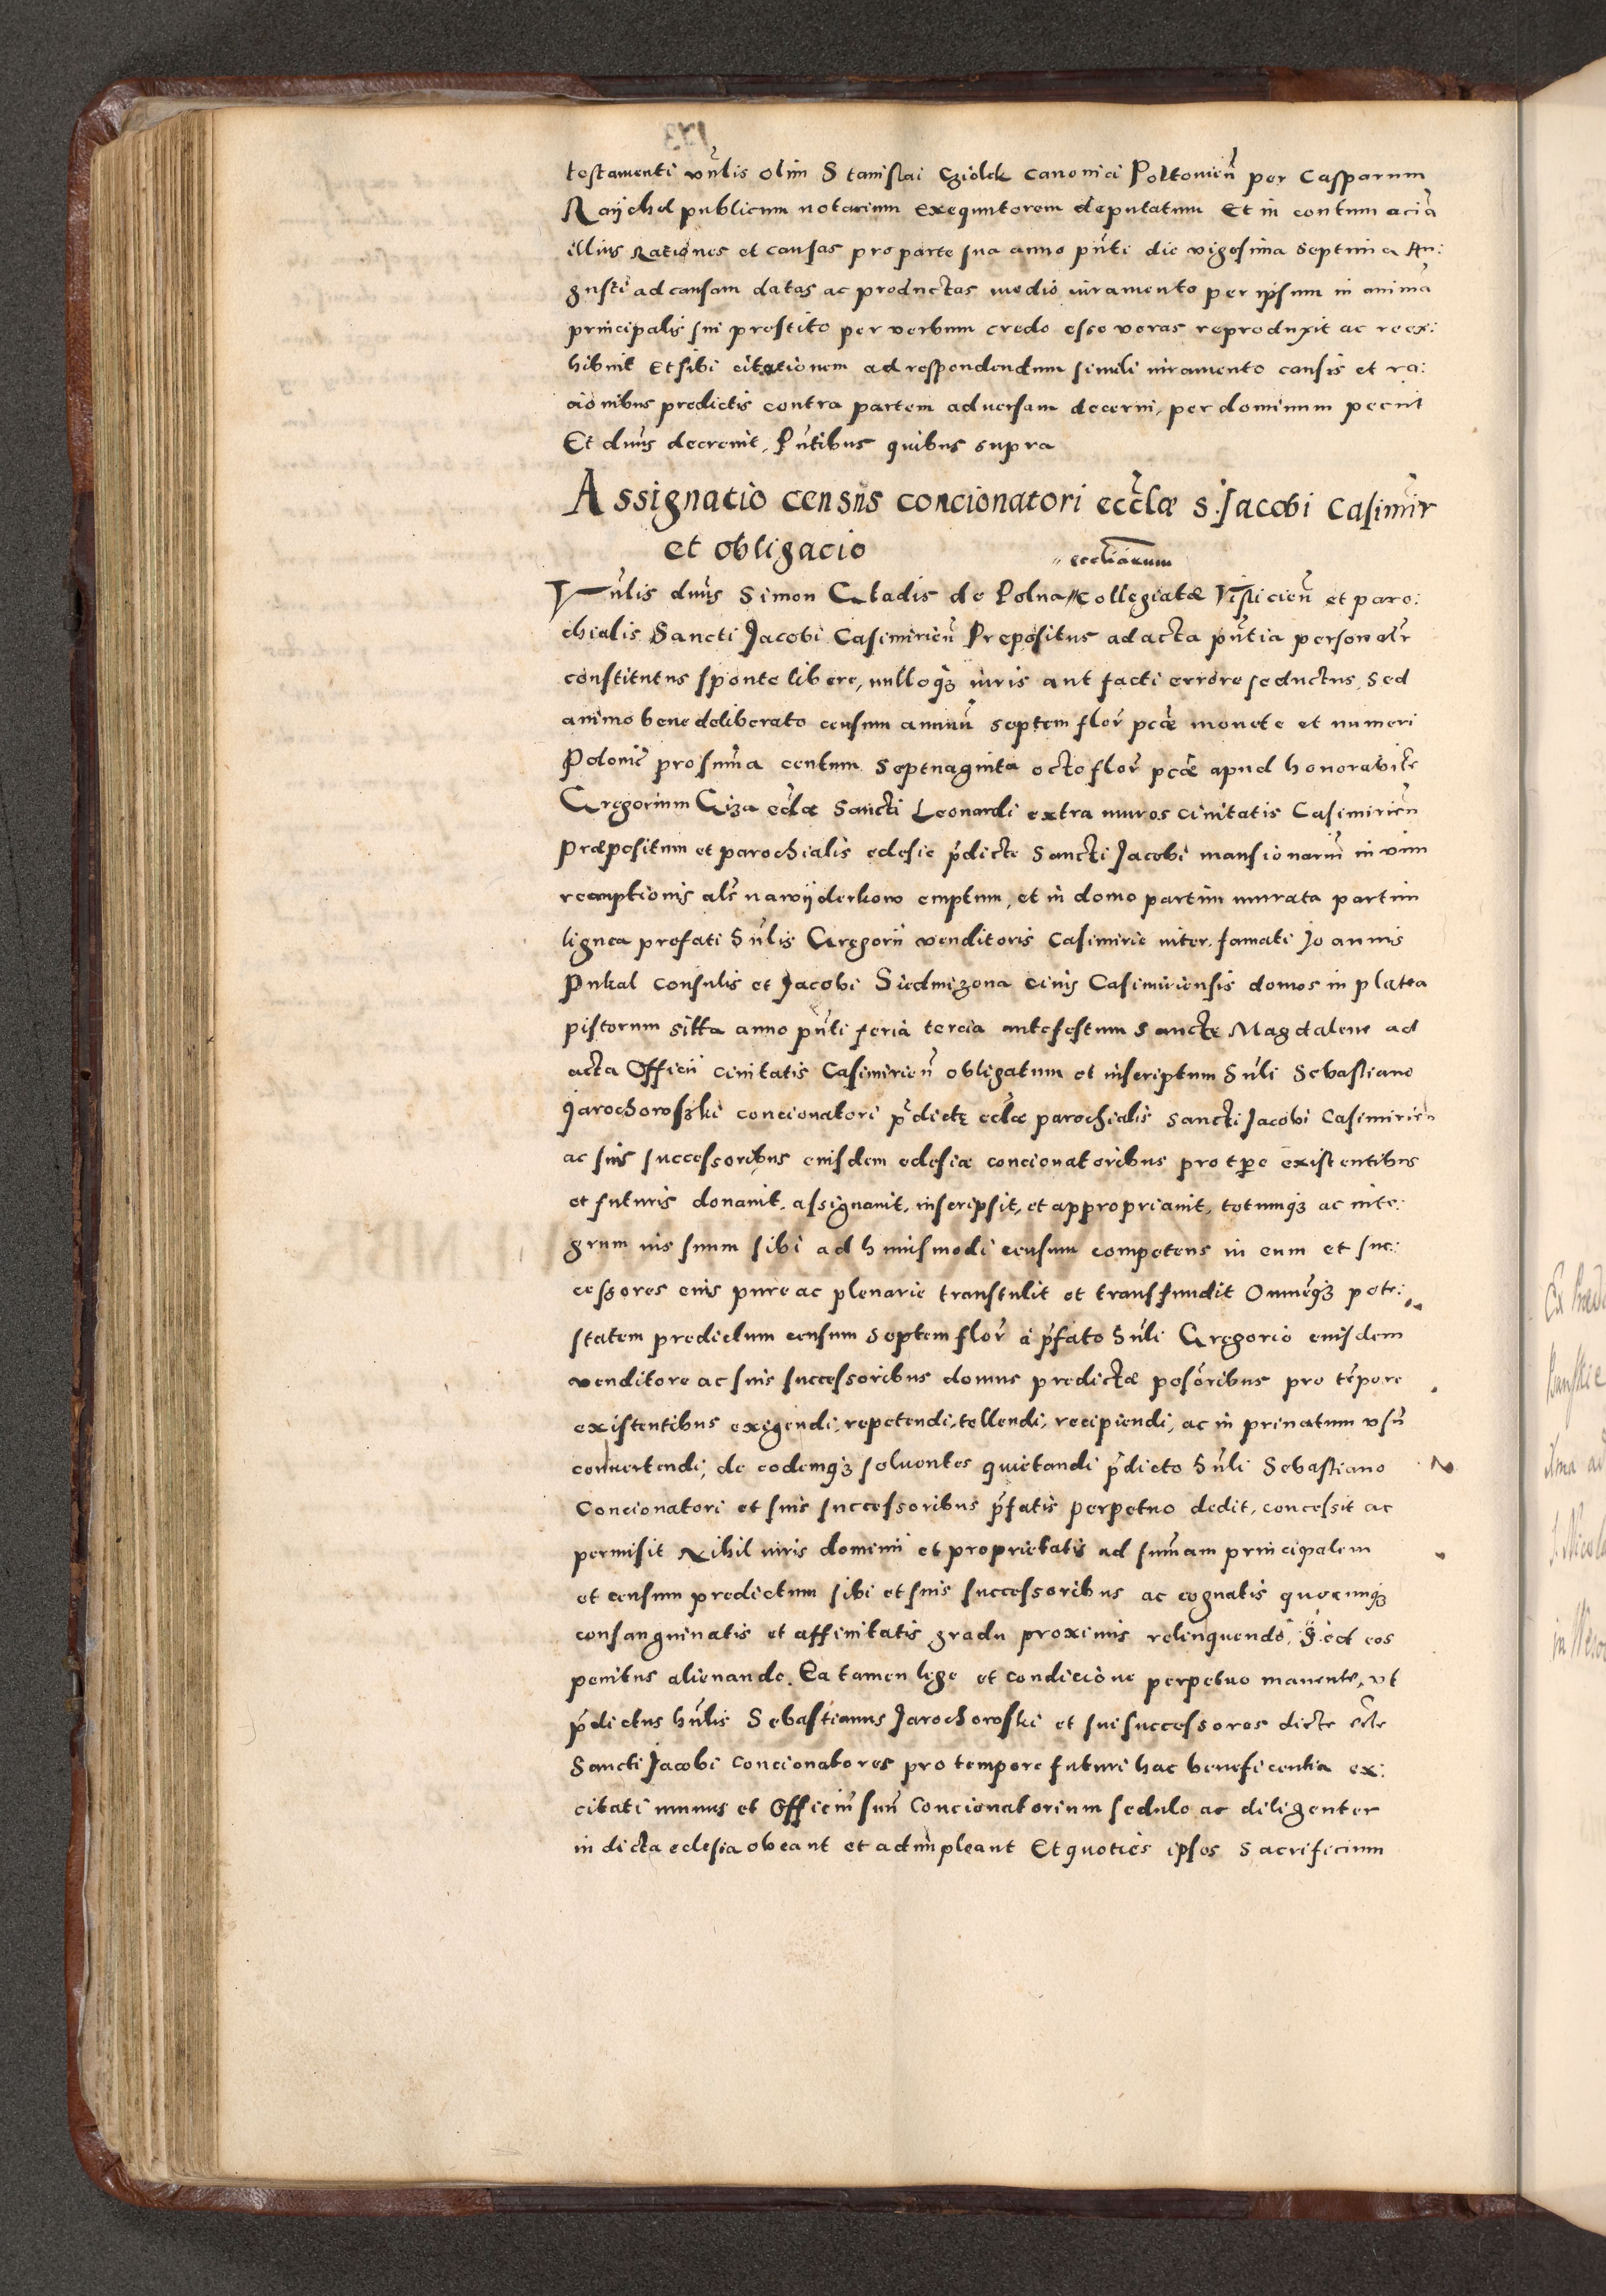 testamenti vnlis olim Stanislai Cziolek canonici Poltouien per Casparum
Raychel publicum notarium exequutorem deputatum Et in contumaciã
illius Rationes et causas pro parte sua anno pnti die vigesima septima Au:
gusti ad causam datas ac productas medio iuramento per ipsum in animã
principalis sui prestito per verbum credo esse veras reproduxit ac reex:
hibuit Et sibi citationem ad respondendum simili iuramento causis et ra:
cionibus predictis contra partem aduersam decerni, per dominum peciit
Et dnus decreuit, Pntibus quibus supra
Assignatio census concionatori ecclæ S. Jacobi Casimir
et obligacio
eccliarum
Vnlis dnus Simon Ctadis de Polna Collegiatæ Vislicien et paro:
chialis Sancti Jacobi Casimirien Prepositus ad acta pntia personalr
constitutus sponte libere, nulloqз iuris aut facti errore seductus, Sed
animo bene deliberato censum annuũ septem flor pcæ monete et numeri
Polonic pro summa centum Septuaginta octo flor pcæ apud honorabile
Gregorium Giza eclæ Sancti Leonardi extra muros ciuitatis Casimirien
Præpositum et parochialis eclesie pdicte Sancti Jacobi mansionariũ in vim
reemptionis als nawyderkow emptum, et in domo partim murata partim
lignea prefati hnlis Gregorii venditoris Casimirie inter, famati Joannis
Pukal consulis et Jacobi Siedmizona ciuis Casimiriensis domos in platea
pistorum sitta anno pnti feria tercia ante festum Sancte Magdalene ad
acta Officii ciuitatis Casimirien obligatum et inscriptum hnli Sebastiano
Jarochowszki concionatori pdicte eclæ parochialis Sancti Jacobi Casimirien
ac suis successoribus eiusdem eclesiæ concionatoribus pro tpe existentibus
et futuris donauit, assignauit, inscripsit, et appropriauit, totumqз ac inte:
grum ius suum sibi ad huiusmodi censum competens in eum et suc:
cessores eius pure ac plenarie transtulit et transfundit Omneqз pote:
statem predictum censum septem flor à pfato hnli Gregorio eiusdem
venditore ac suis successoribus domus predictæ posoribus pro tempore
existentibus exigendi, repetendi, tollendi, recipiendi, ac in priuatum vsũ
conuertendi, de eodemqз soluentes quietandi pdicto hnli Sebastiano
Concionatori et suis successoribus pfatis perpetuo dedit, concessit ac
permisit Nihil iuris dominii et proprietatis ad summam principalem
et censum predictum sibi et suis successoribus ac cognatis quocunqз
consanguinatis et affinitatis gradu proximis relinquendo, Sed eos
penitus alienando. Ea tamen lege et condicione perpetuo manente, vt
pdictus hnlis Sebastianus Jarochowski et sui successores dicte ecle
Sancti Jacobi Concionatores pro tempore futuri hac beneficentia ex:
citati munus et Officiũ suũ Concionatorium sedulo ac diligenter
in dicta eclesia obeant et adimpleant Et quoties ipsos Sacrificium